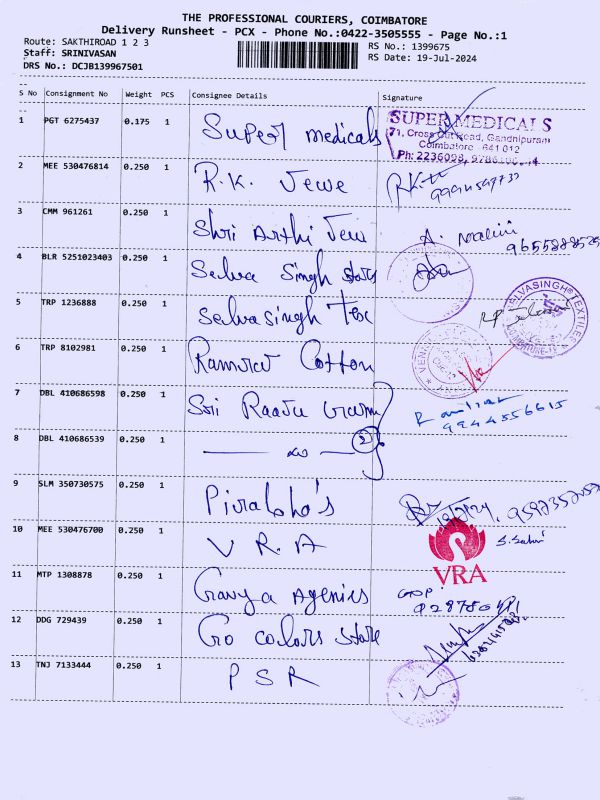 THE PROFESSIONAL COURIERS, COIMBATORE
Delivery Runsheet - PCX - Phone No.:0422-3505555 - Page No.:1
Route: SAKTHIROAD 1 2 3
RS No.: 1399675
Staff: SRINIVASAN
RS Date: 19-Jul-2024
DRS No.: DCJB139967501
S No Consignment No Weight PCS Consignee Details Signature
1 PGT 6275437 0.175 1 Super medicals
SUPER MEDICALS
71, Cross Cut Road, Gandhipuram
Coimbatore - 641 012
Ph: 2236098,
2 MEE 530476814 0.250 1 R.K. Jewe
3 CMM 961261 0.250 1 Shri Arthi Jew A. Malini
4 BLR 5251023403 0.250 1 Selva Singh Store
5 TRP 1236888 0.250 1 Selvasingh Tex
SELVASINGH TEXTILES
6 TRP 8102981 0.250 1 Ramraj Cotton
7 DBL 410686598 0.250 1 Sri Raaju
9944556615
8 DBL 410686539 0.250 1 2
9 SLM 350730575 0.250 1
10 MEE 530476700 0.250 1 V R A
VRA
11 MTP 1308878 0.250 1 Agenies
12 DDG 729439 0.250 1 Go colors store
13 TNJ 7133444 0.250 1 P S R